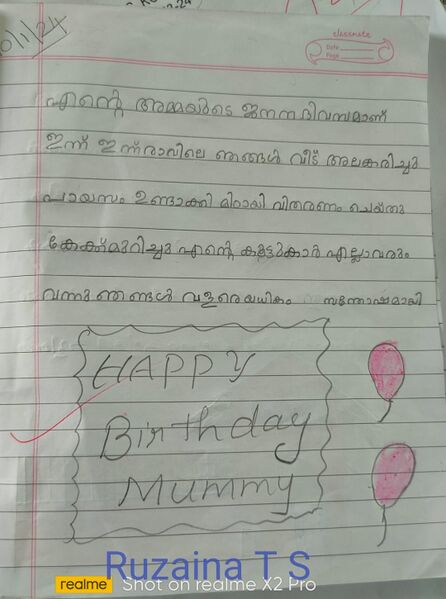 0/1/24
classmate
Date
Page
എന്റെ അമ്മയുടെ ജനനദിവസമാണ്
ഇന്ന് ഇന്ന് രാവിലെ ഞങ്ങൾ വീട് അലങ്കരിച്ചു
പായസം ഉണ്ടാക്കി മിഠായി വിതരണം ചെയ്തു
കേക്ക്മുറിച്ചു എന്റെ കൂട്ടുകാർ എല്ലാവരും
വന്നു ഞങ്ങൾ വളരെയധികം സന്തോഷമായി
HAPPY
Birthday
Mummy
Ruzaina T S
realme Shot on realme X2 Pro